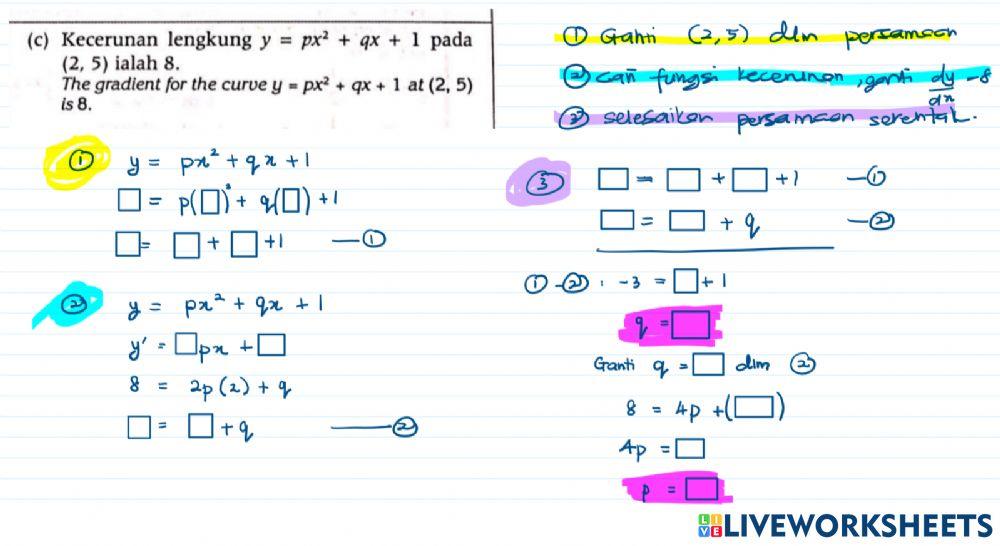 (c) Kecerunan lengkung y = px² + qx + 1 pada
(2, 5) ialah 8.
The gradient for the curve y = px² + qx + 1 at (2, 5)
is 8.
① Ganti (2,5) dlm persamaan
② cari fungsi kecerunan, ganti dy/dx = 8
③ selesaikan persamaan serentak.
① y = px² + qx + 1
□ = p(□)² + q(□) + 1
□ = □ + □ + 1 —①
② y = px² + qx + 1
y' = □px + □
8 = 2p(2) + q
□ = □ + q —②
③ □ = □ + □ + 1 —①
□ = □ + q —②
① - ② : -3 = □ + 1
q = □
Ganti q = □ dlm ②
8 = 4p + (□)
4p = □
p = □
LIVEWORKSHEETS